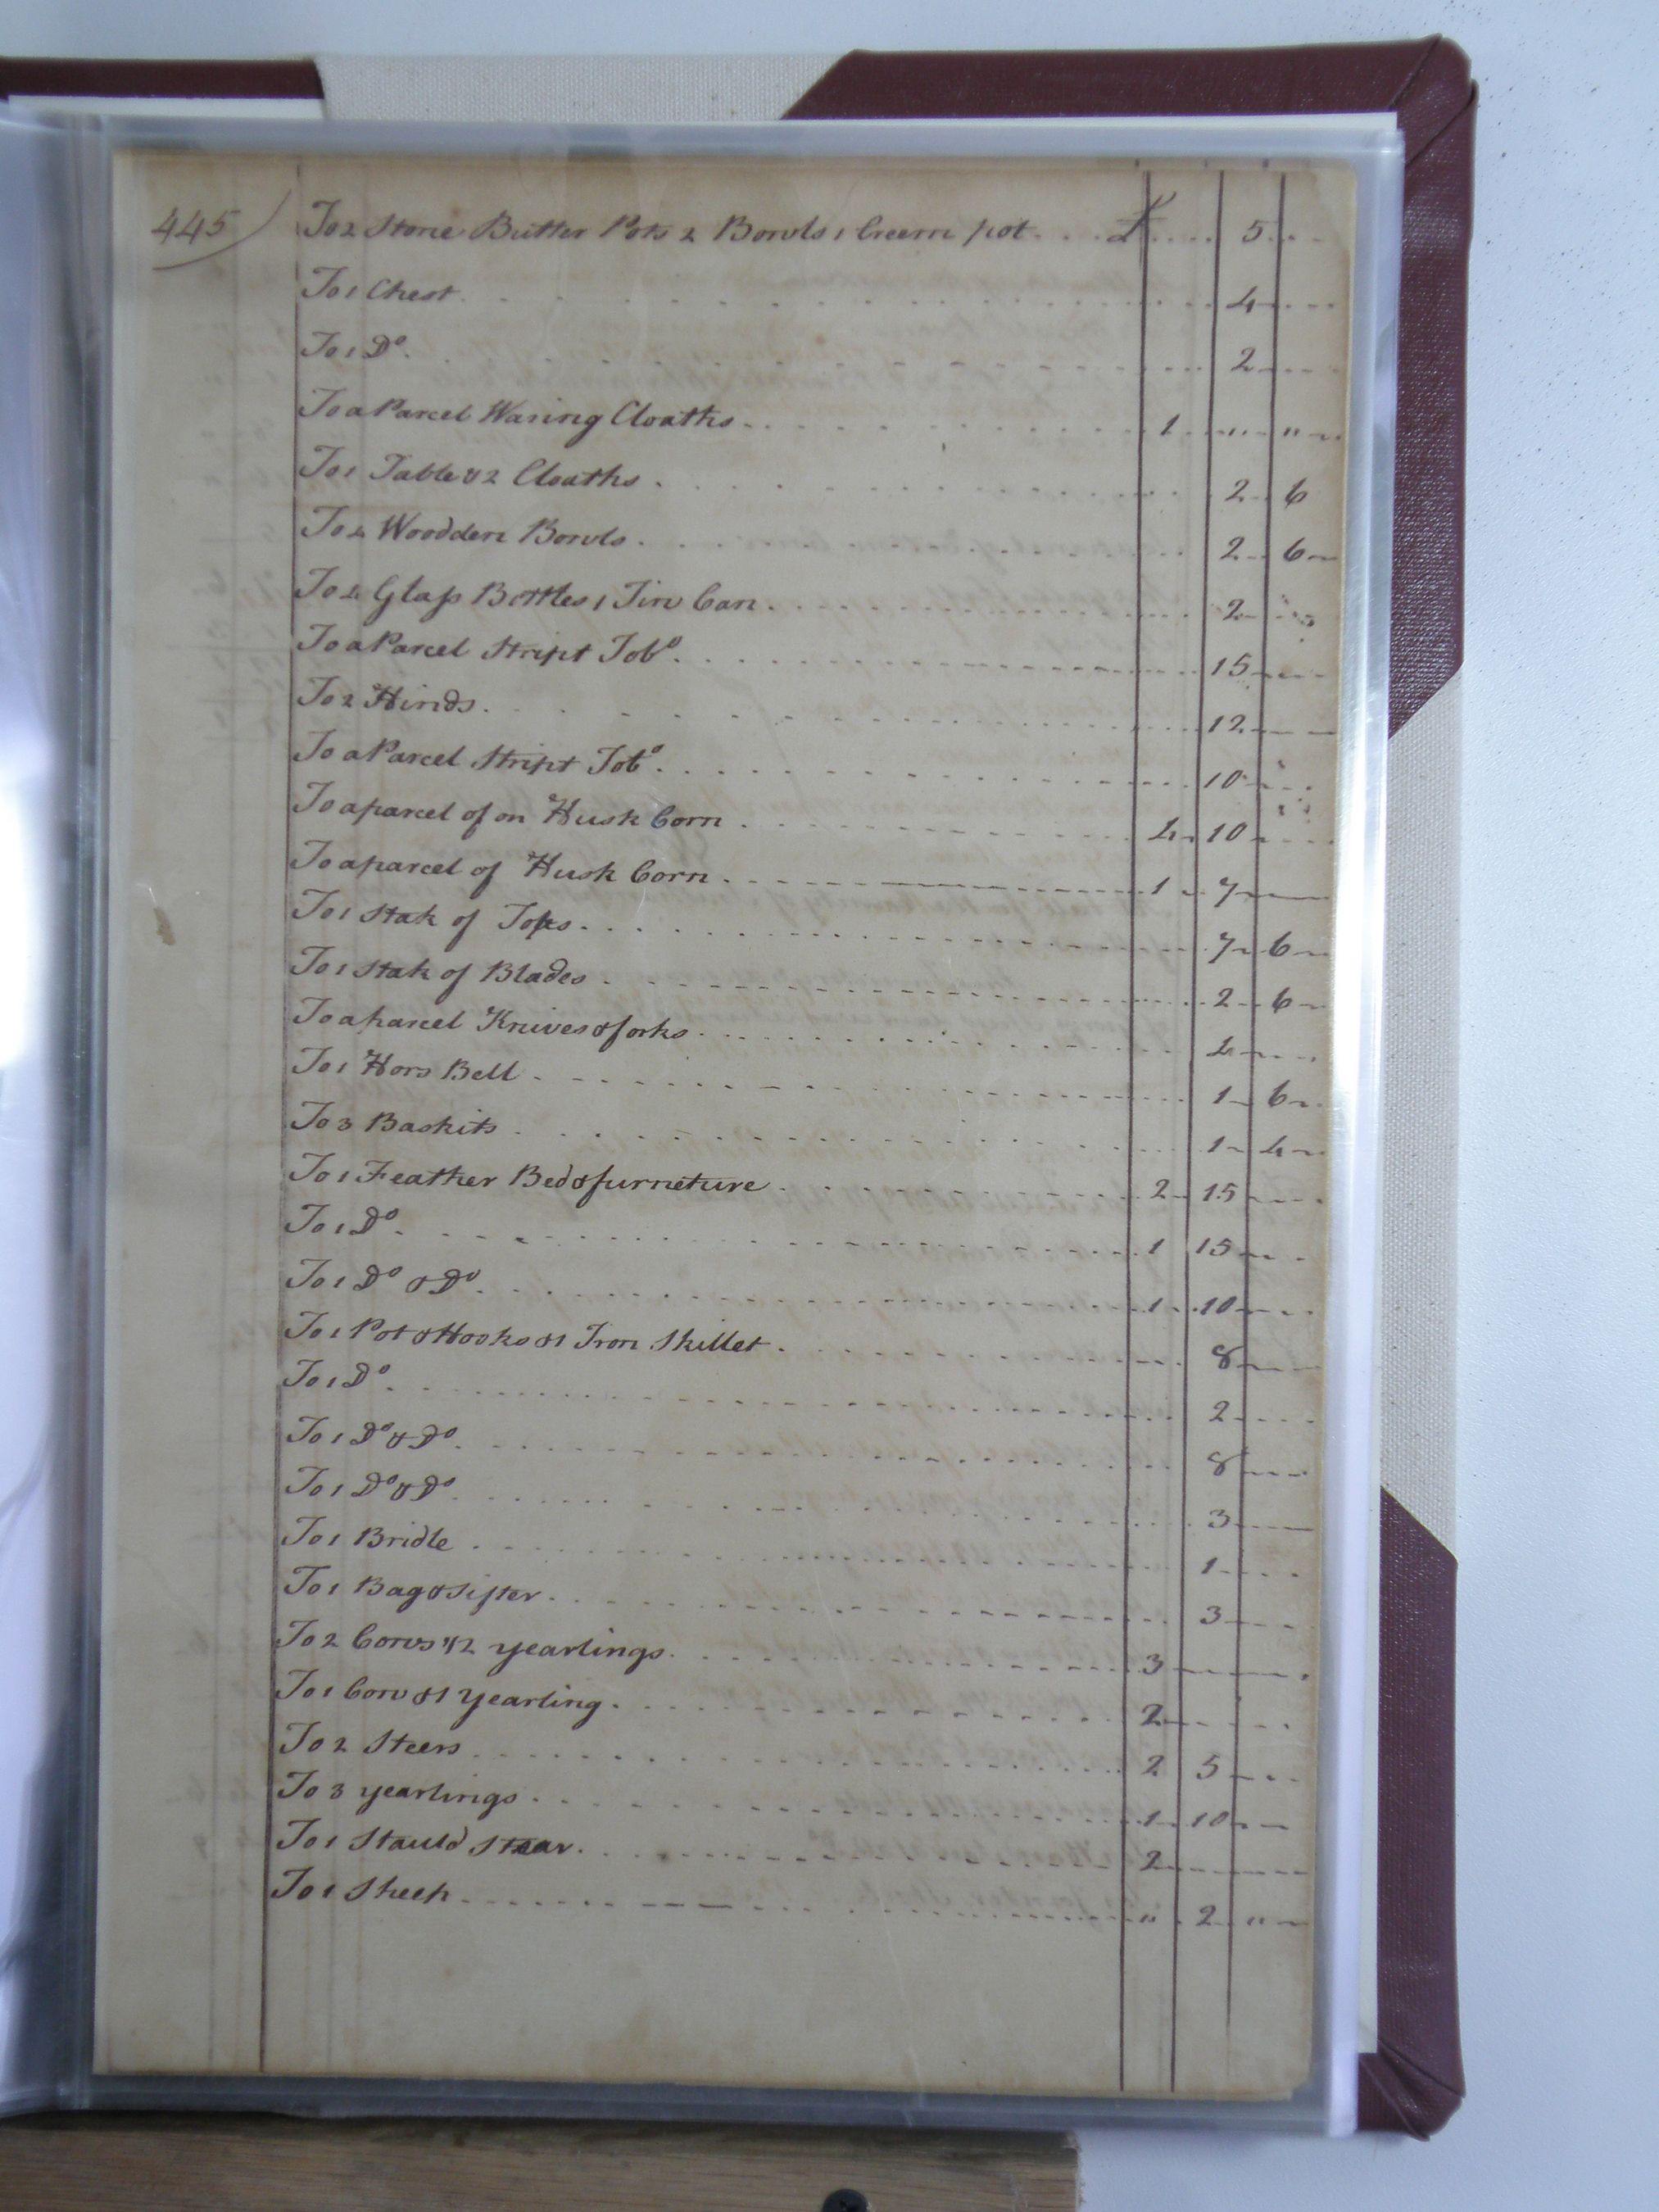 445) To 2 Stone Butter Pots 2 Bowls 1 Creem pot £ 5
To 1 Chest 4
To 1 Do. 2
To a Parcel Waring Cloaths 1 " "
To 1 Table & 2 Cloaths 2 6
To 4 Woodden Bowls 2 6
To 4 Glass Bottles 1 Tin Can 2
To a Parcel Stript Tobo. 15
To 2 Hinds 12
To a Parcel Stript Tobo. 10
To a parcel of on Husk Corn 4 10
To a parcel of Husk Corn 1 7
To 1 Stak of Tops 7 6
To 1 Stak of Blades 2 6
To a parcel Knives & forks 4
To 1 Hors Bell 1 6
To 3 Baskits 1 4
To 1 Feather Bed & furneture 2 15
To 1 Do. 1 15
To 1 Do & Do. 1 10
To 1 Pot & Hooks & 1 Iron Skillet 8
To 1 Do. 2
To 1 Do & Do. 8
To 1 Do & Do. 3
To 1 Bridle 1
To 1 Bag & Sifter 3
To 2 Cows & 2 yearlings 3
To 1 Cow & 1 yearling 2
To 2 Steers 2 5
To 3 yearlings 1 10
To 1 Stauld Stear 2
To 1 Sheep " 2 "